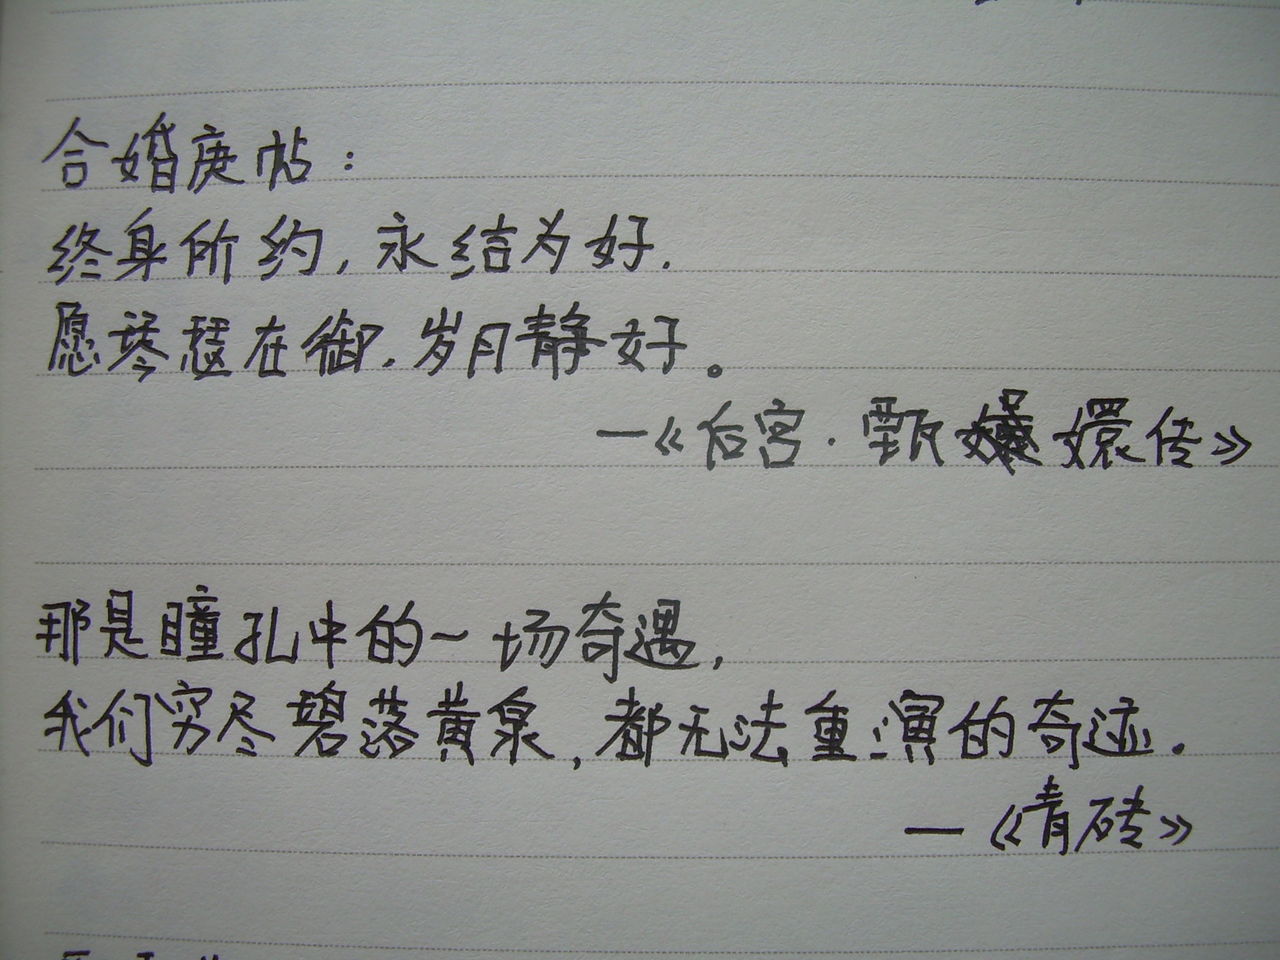 合婚庚帖：
终身所约,永结为好.
愿琴瑟在御.岁月静好。
—《后宫·甄嬛传》
那是瞳孔中的~一场奇遇,
我们穷尽碧落黄泉,都无法重演的奇迹.
—《青砖》